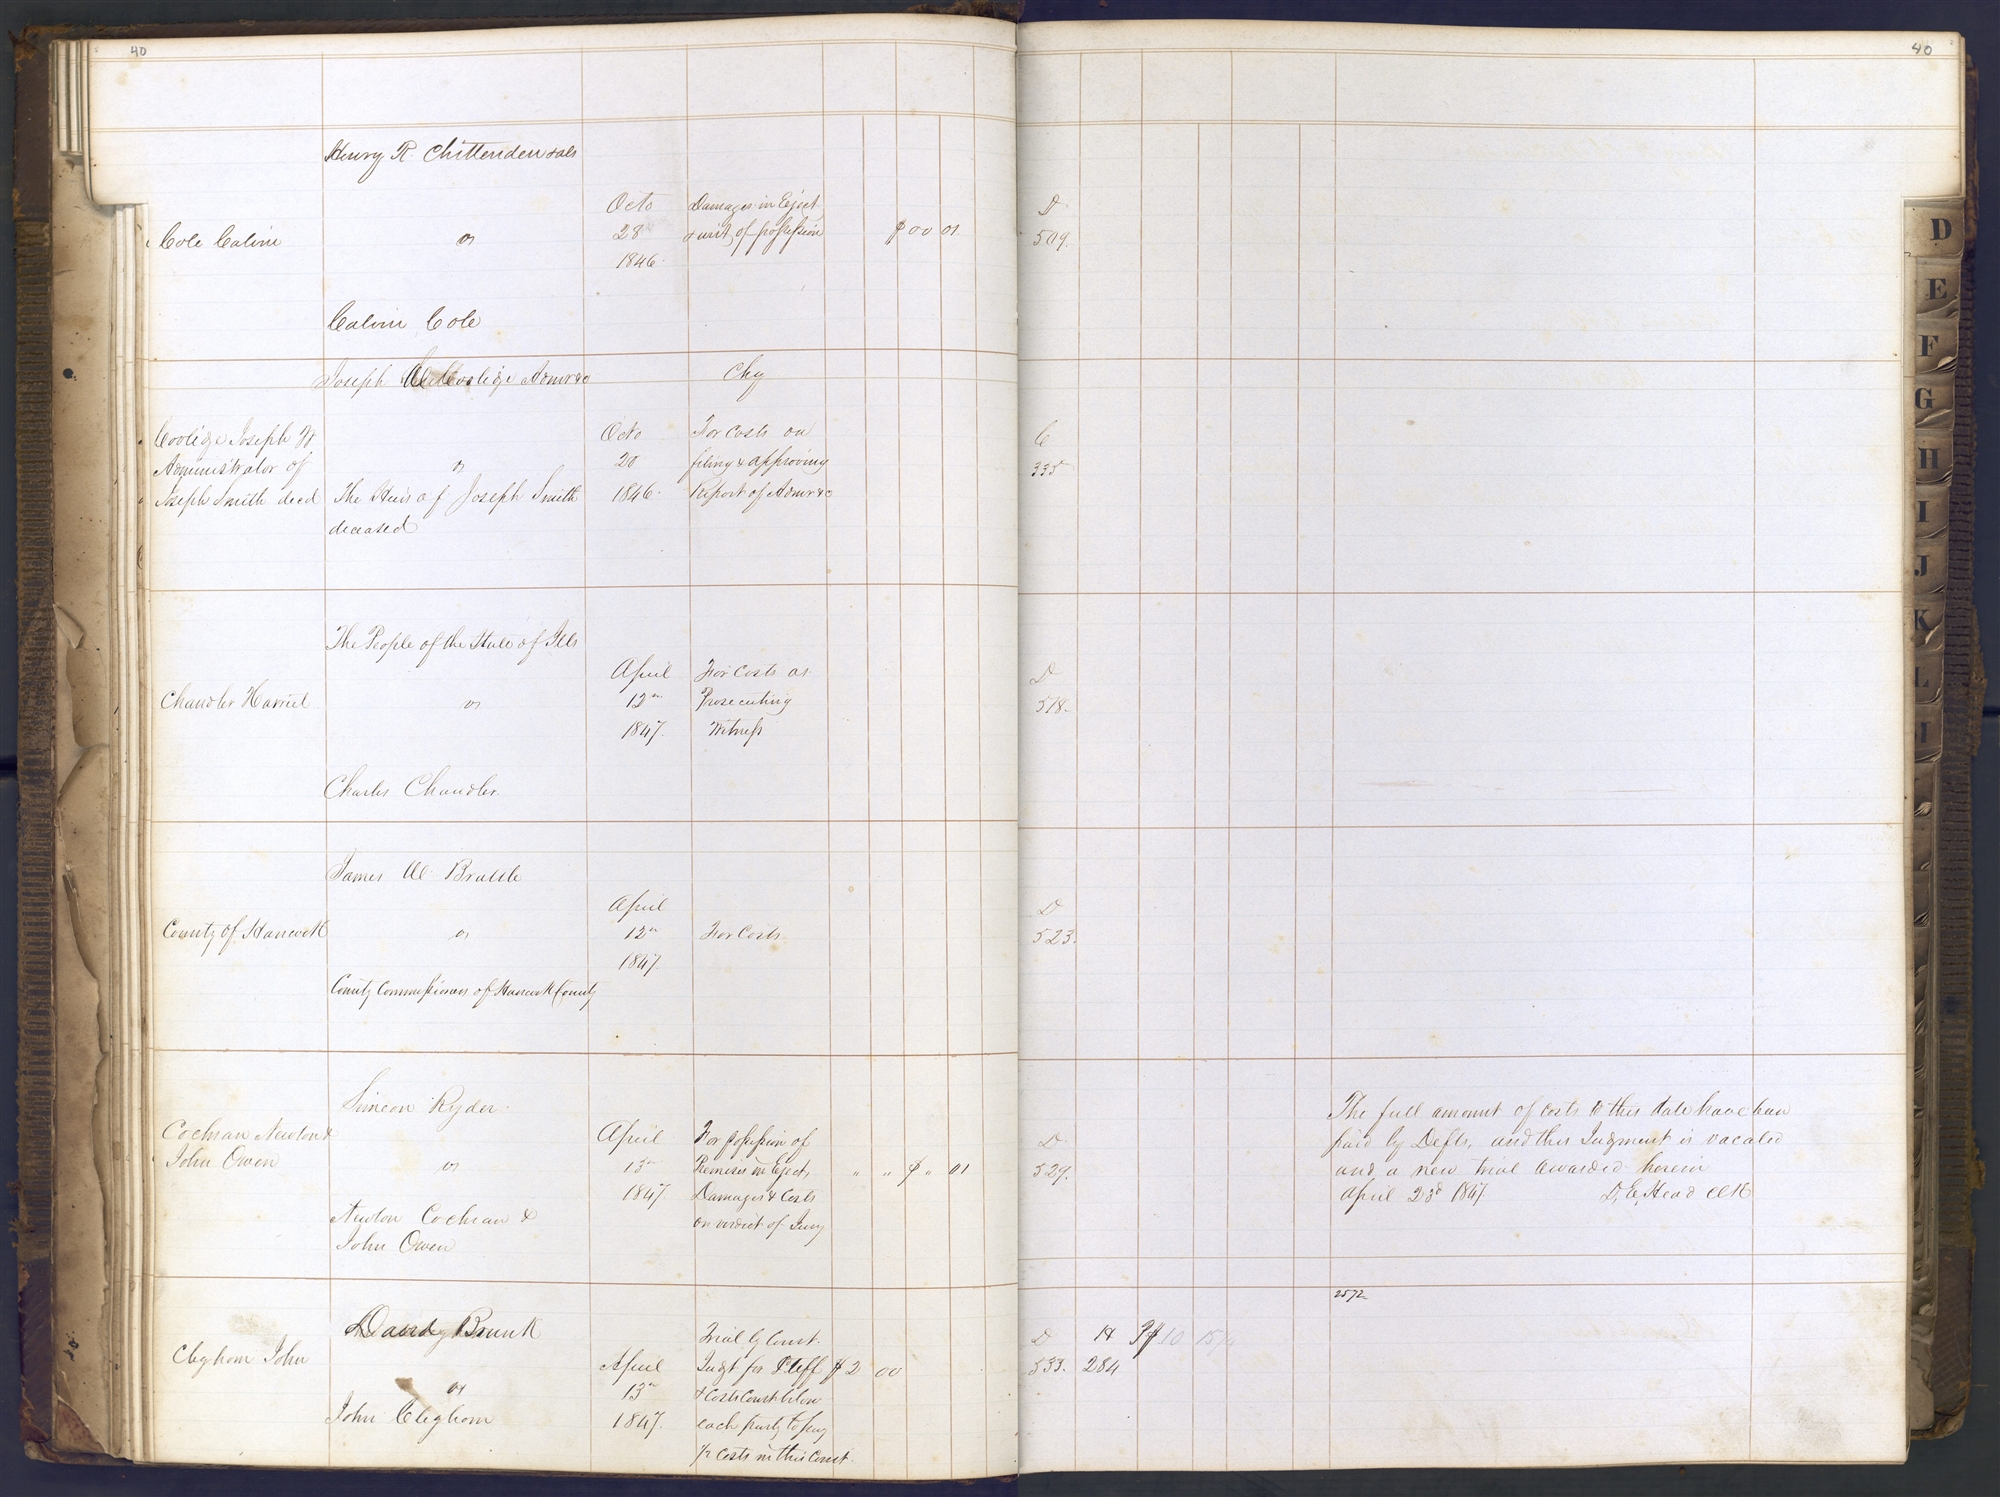 40
40
Henry R. Chittenden & als
Octo
Damages in Eject
D
Cole Calvin
vs
28
& writ of possession
$ 00 01
509.
1846.
Calvin Cole
Joseph W Coolige Admr &c
Chy
Coolige Joseph W
Octo
For Costs on
C
Administrator of
vs
20
filing & approving
335
Joseph Smith decd
The Heirs of Joseph Smith
1846.
Report of Admr &c
deceased
The People of the State of Ills
April
For Costs as
D
Chandler Harriet
vs
12th
Prosecuting
518.
1847.
Witness
Charles Chandler.
James W. Brattle
April
D
County of Hancock
vs
12th
For Costs
523.
1847.
County Commissioners of Hancock County
Simeon Ryder.
The full amount of costs to this date have been
Cochran Newton &
April
For possession of
D
paid by Defts. and this Judgment is vacated
John Owen
vs
13th
Premises in Eject,
" " $ " 01
529.
and a new trial awarded herein
1847
Damages & Costs
April 23d 1847.
D. E. Head Clk
Newton Cochran &
on verdict of Jury
John Owen
2572
David Brunk
Trial by Court.
D
H
10
Cleghorn John
April
Judgt for Pltff
$2 00
533.
284
vs
13th
& Costs Court below
John Cleghorn
1847.
each party to pay
1/2 Costs in this Court.
D
E
F
G
H
I
J
K
L
M